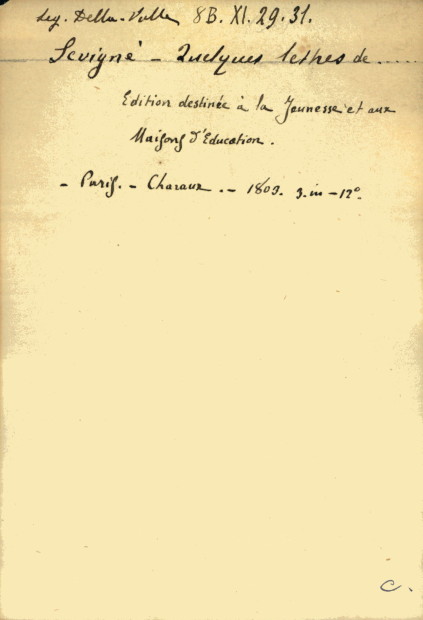 Leg. Della-Valle 8B. XI. 29. 31.
Sevigné - Quelques lettres de.....
Edition destinée à la Jeunesse et aux
Maisons d'Education.
- Paris. - Charaux. - 1803. 3. in-12°.
C.